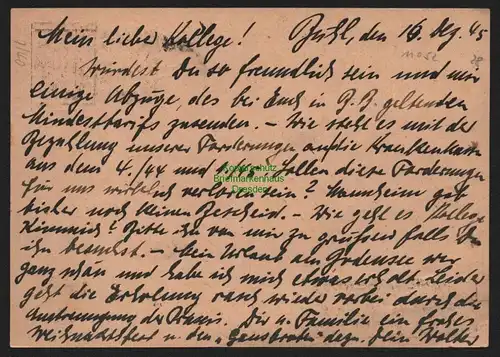 Mein lieber Kollege! Bühl, den 16. Dez. 45
Würdest Du so freundlich sein und mir
einige Abzüge, des bei Euch in B.B. geltenden
Mindesttarifs zusenden. - Wie steht es mit der
Bezahlung unserer Forderungen an die Krankenkassen
aus dem 4./44 und sollen diese Forderungen
für uns wirklich verloren sein? Mannheim gab
bisher noch keinen Bescheid. - Wie geht es Kollege
? Bitte ihn von mir zu grüßen falls Du
ihn kennst. - Mein Urlaub am Bodensee war
ganz schön und habe ich mich etwas erholt. Leider
geht die Erholung rasch wieder vorbei durch die
Anstrengung der Praxis. Dir u. Familie ein frohes
Weihnachtsfest u. den "Gansbraten" Dein Walter
Philatelie
Briefmarkenhaus
Dresden